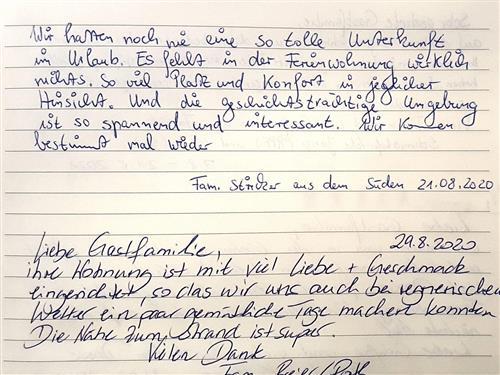 Wir hatten noch nie eine so tolle Unterkunft
im Urlaub. Es fehlt in der Ferienwohnung wirklich
nichts. So viel Platz und Komfort in jeglicher
Hinsicht. Und die geschichtsträchtige Umgebung
ist so spannend und interessant. Wir kommen
bestimmt mal wieder
Fam. aus dem Süden 21.08.2020
Liebe Gastfamilie, 29.8.2020
ihre Wohnung ist mit viel Liebe + Geschmack
eingerichtet, so das wir uns auch bei regnerischen
Wetter ein paar gemütliche Tage machen konnten
Die Nähe zum Strand ist super.
Vielen Dank
Fam.